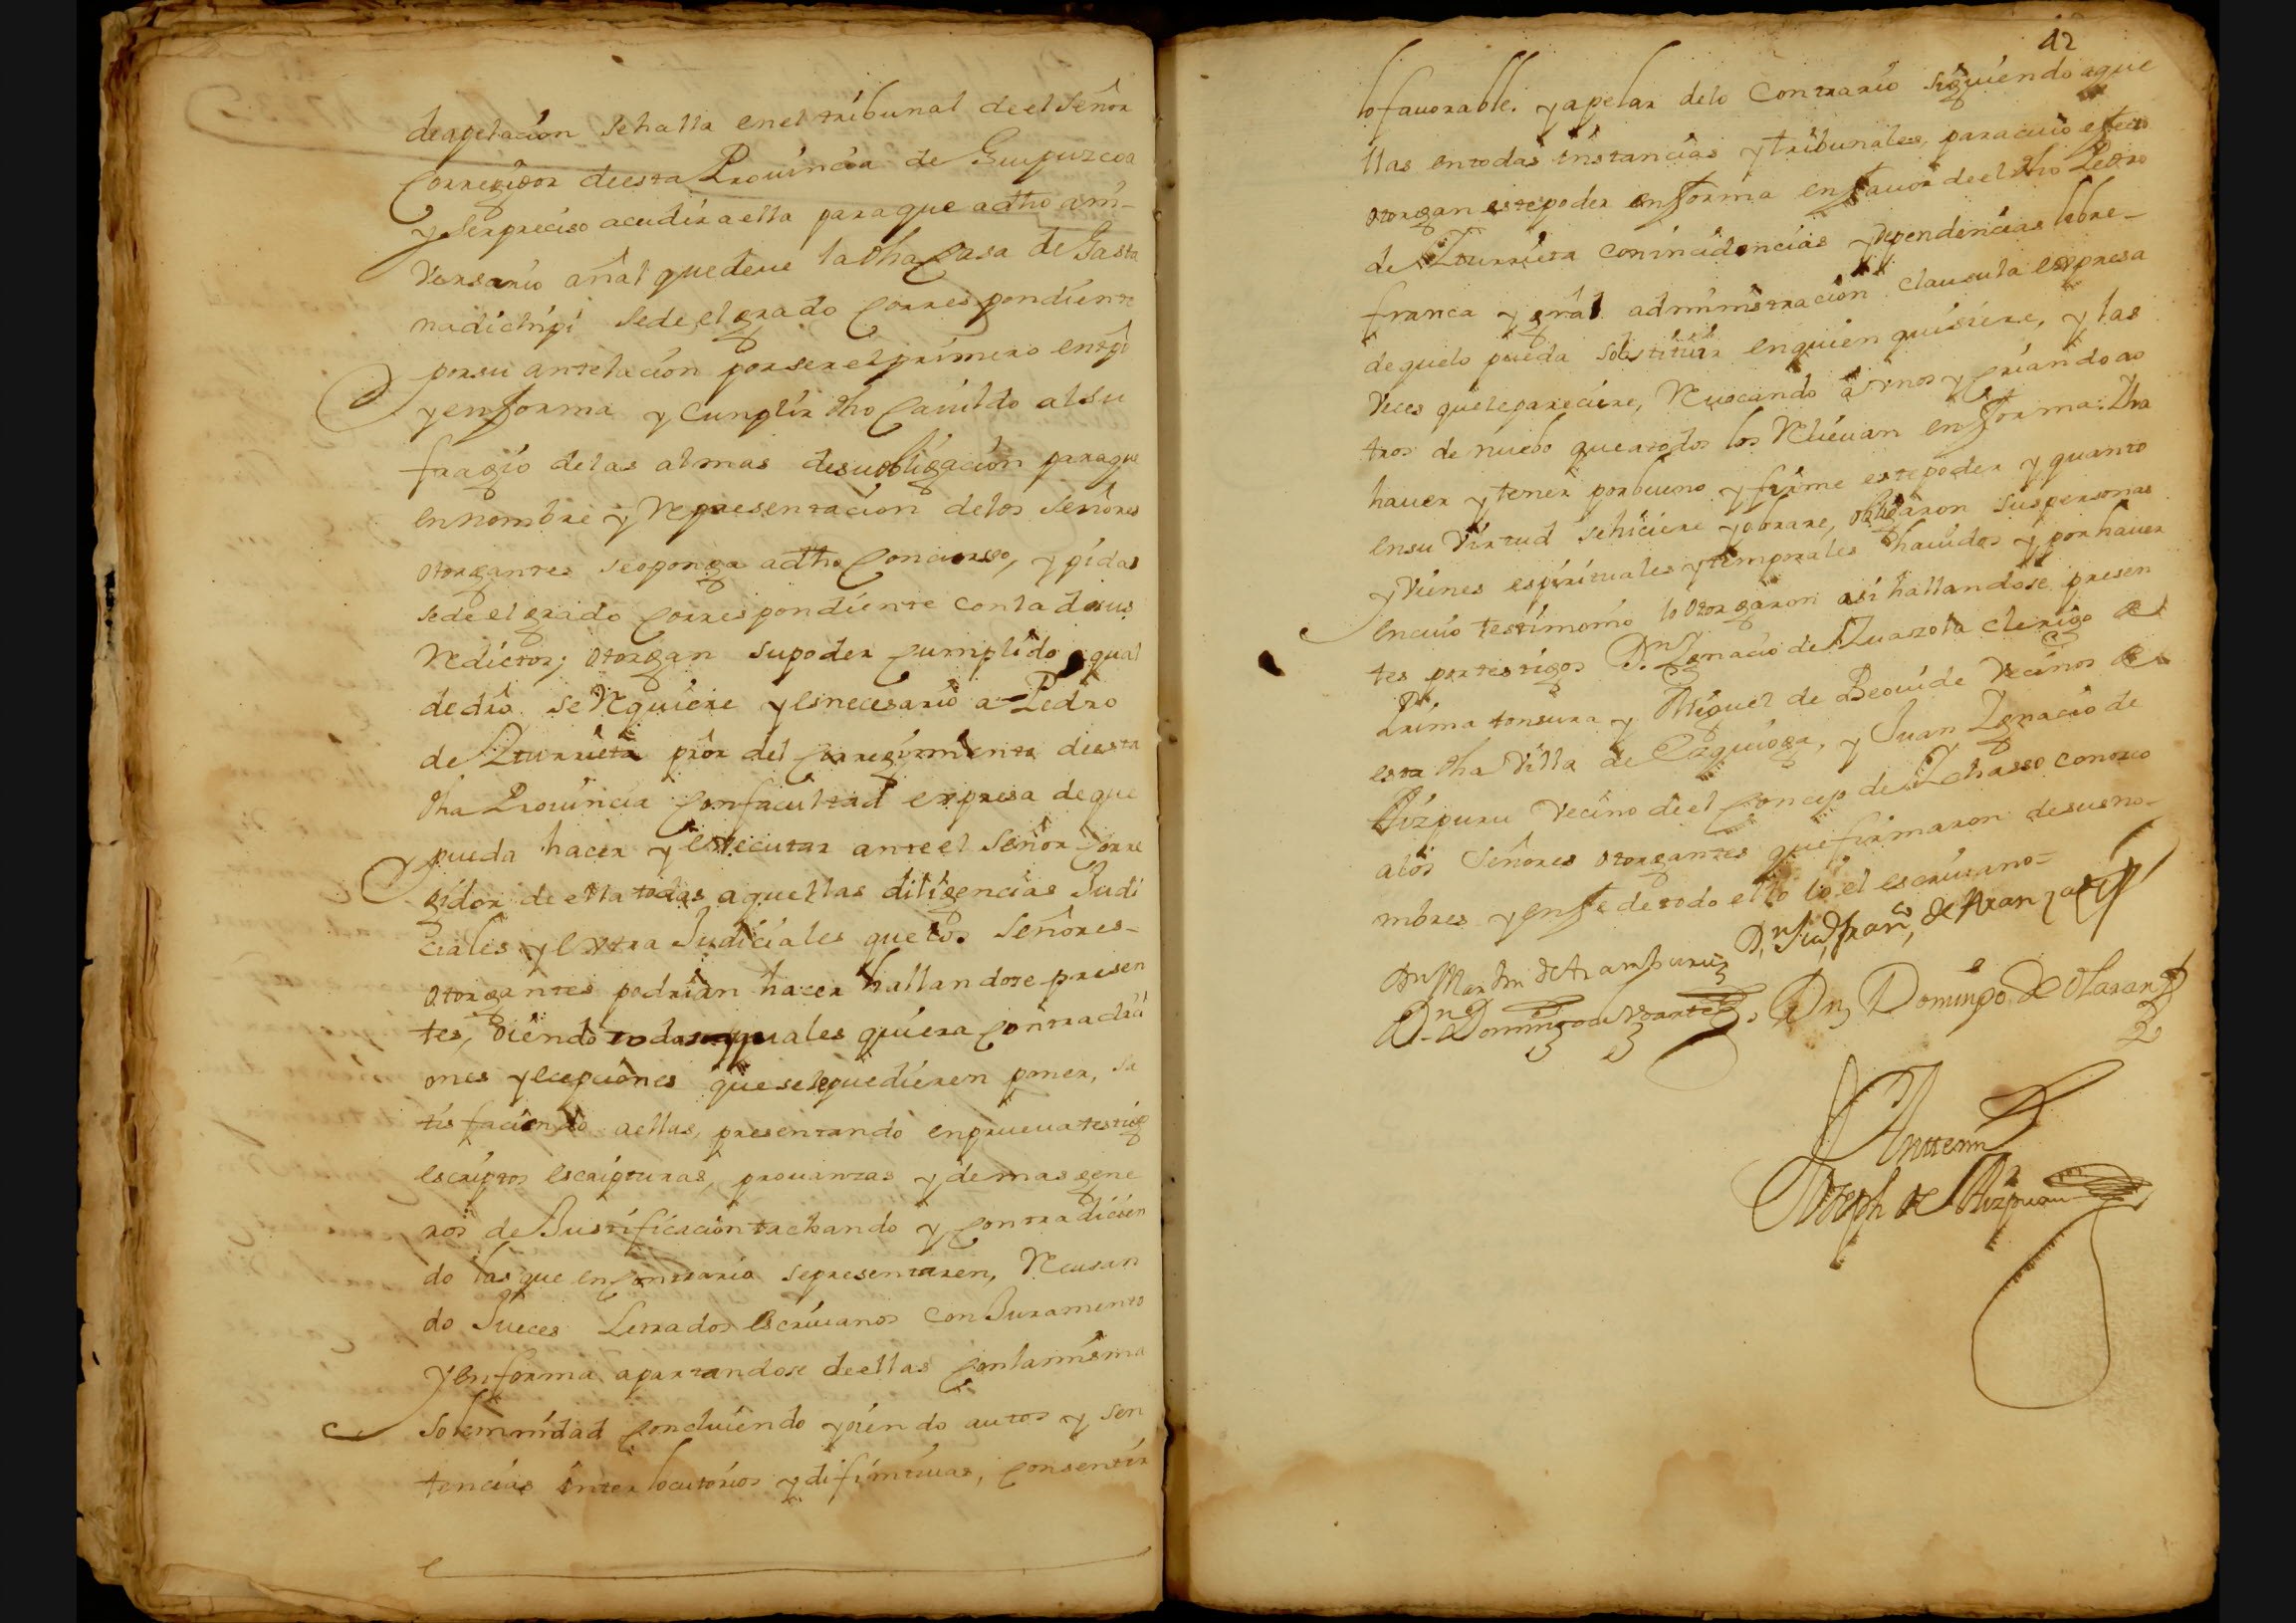 de apelacion se halla en el tribunal de el Señor
Corregidor de esta Prouincia de Guipuzcoa
y ser preciso acudir a ella para que a dho ani-
versario añal que deue la dha Casa de Gasta
nadichipi se de el grado Correspondiente
por su antelacion por ser el primero en tpo
y en forma y Cumplir dho Cauildo al su
fragio de las almas de su obligacion para que
en nombre y Representacion de los Señores
otorgantes se oponga a dho Concurso, y pida
se de el grado Correspondiente con la de sus
Reditos; otorgan su poder Cumplido qual
de dro se Requiere y es necesario a Pedro
de Iturrieta pror del Corregimiento de esta
dha Prouincia Con facultad expresa de que
pueda hacer y executar ante el Señor Corre
gidor de ella todas aquellas diligencias Judi
ciales y extra Judiciales que los Señores-
otorgantes podrian hacer hallandose presen
tes, oiendo quales quiera Contradici
ones y ecepciones que se le pudieren poner, sa
tisfaciendo a ellas, presentando en prueua testigos
escriptos escripturas, prouanzas y demas gene
ros de Justificacion tachando y Contradicien
do las que en Contrario se presentaren, Recusan
do Jueces Letrados escriuanos con Juramento
y en forma apartandose de ellas Con la misma
solemnidad Concluiendo y oiendo autos y sen
tencias interlocutorios y difinitiuas, Consentir
42
lo fauorable. y apelar de lo Contrario siguiendo aque
llas en todas instancias y tribunales, para cuio efecto
otorgan este poder en forma en fauor de el dho Pedro
de Iturrieta con incidencias y dependencias libre-
franca y gral administracion clausula expresa
de que lo pueda sobstituir en quien quisiere, y las
veces que le pareciere, Reuocando a vnos y criando ao
tros de nuebo que a todos los Relieuan en forma: Y ha
hauer y tener por bueno y firme este poder y quanto
en su virtud se hiciere y obrare, obligaron sus personas
y vienes espirituales y temporales hauidos y por hauer
en cuio testimonio lo otorgaron asi hallandose presen
tes por testigos Dn Ignacio de Zuazola clerigo de
Prima tonsura y Miguel de Beouide vecinos de
esta dha Villa de Ezquioga, y Juan Ignacio de
Aizpuru vecino de el Concejo de Ichasso conozco
a los Señores otorgantes que firmaron de sus no-
mbres y en fe de todo ello io el escriuano=
Dn Martin de Aramburu Dn Juo franco de Aranzazti
Dn Domingo de Vrarte Dn Domingo de Olaran
Antte mi
Joseph de Aizpuru